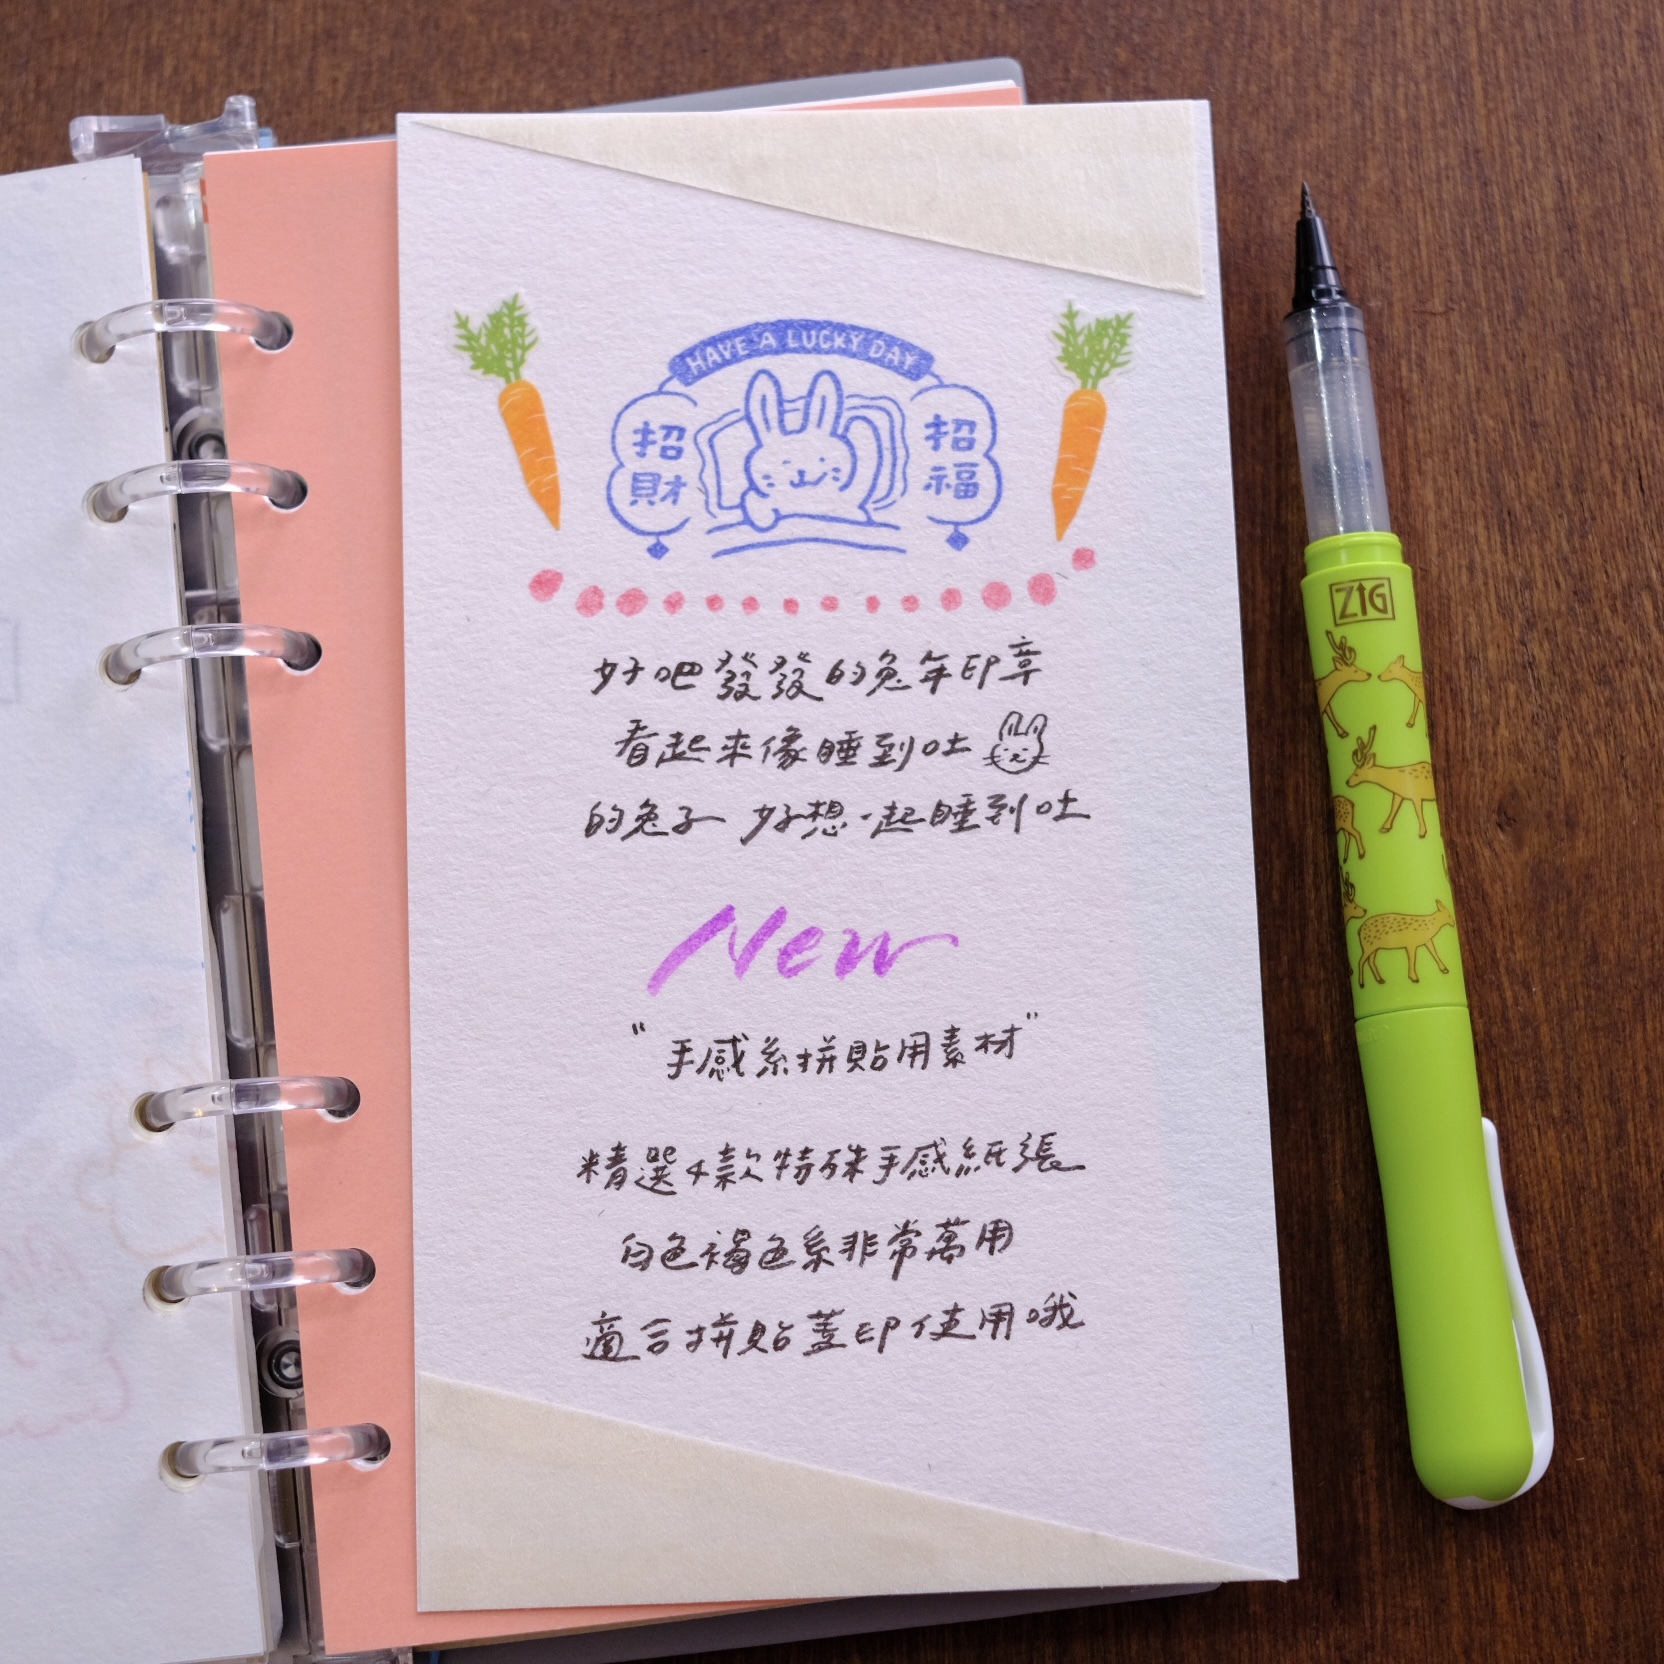 HAVE A LUCKY DAY
招財
招福
好吧發發的兔年印章
看起來像睡到吐
的兔子 好想一起睡到吐
New
"手感系拼貼用素材"
精選4款特殊手感紙張
白色褐色系非常萬用
適合拼貼蓋印使用哦
ZIG